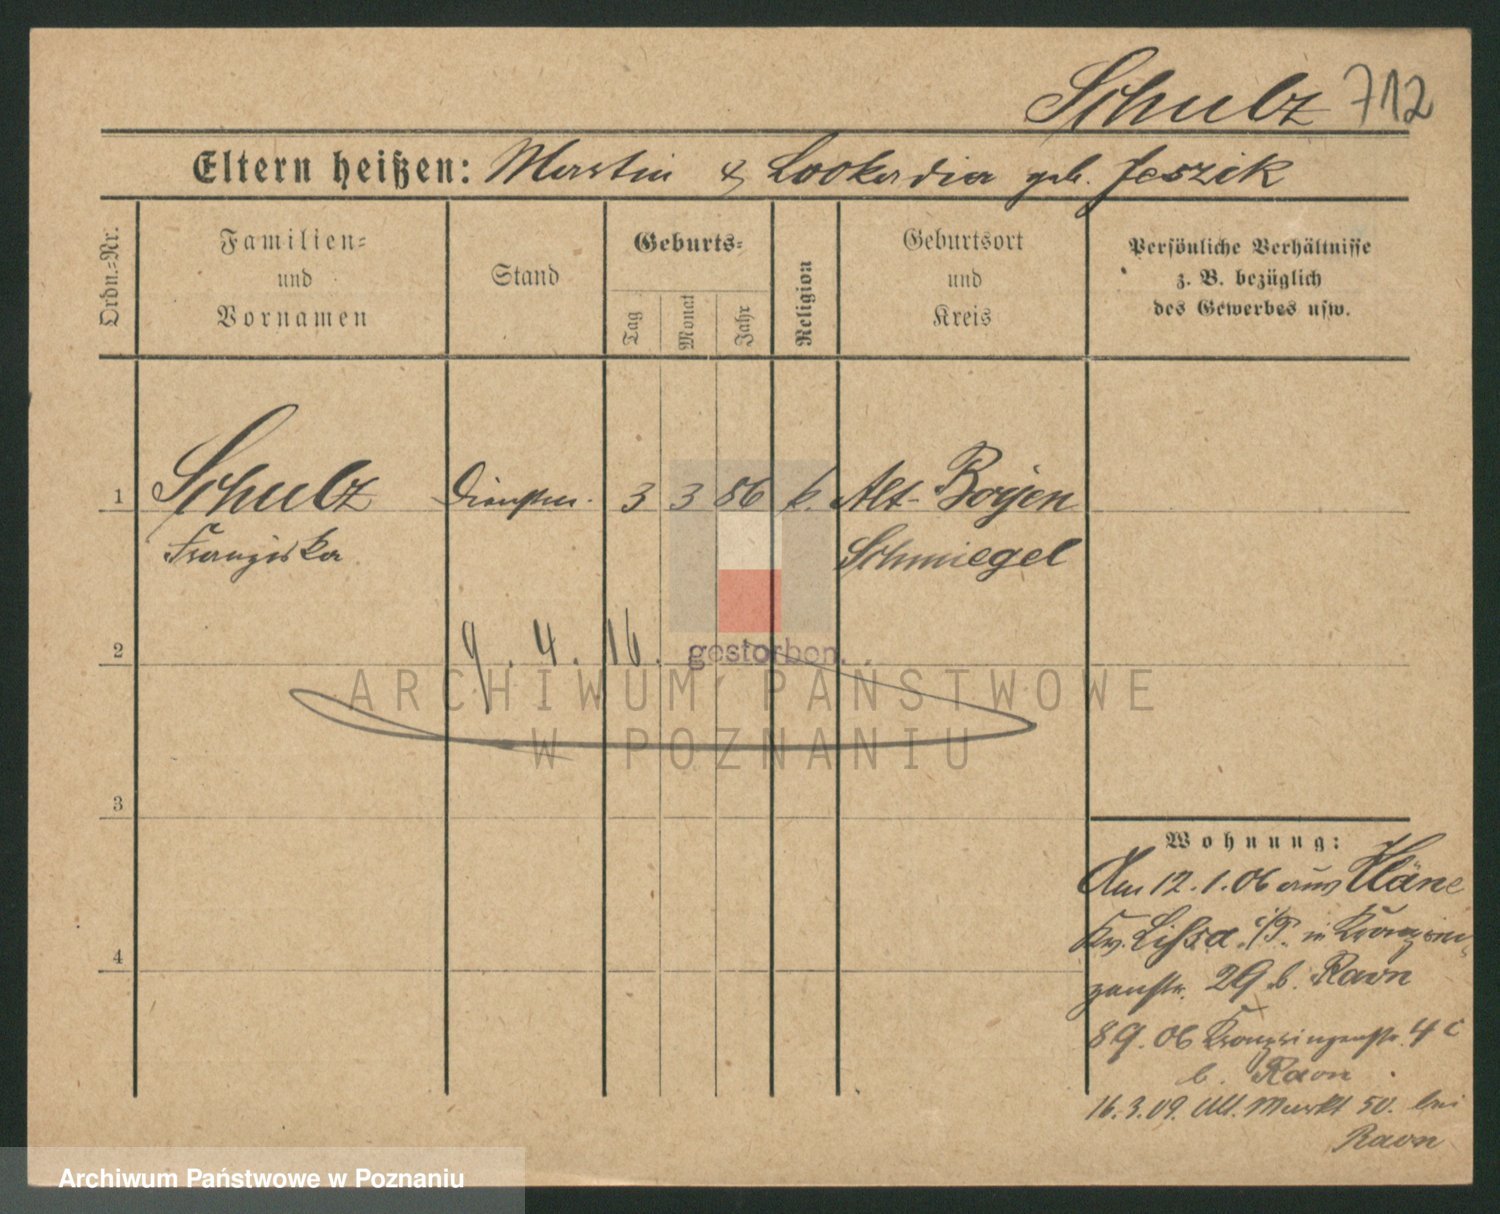 Schulz 712
Eltern heißen: Martin & Leokardia geb. Jeszik
Ordn.-Nr.
Familien-
und
Vornamen
Stand
Geburts-
Tag
Monat
Jahr
Religion
Geburtsort
und
Kreis
Persönliche Verhältnisse
z. B. bezüglich
des Gewerbes usw.
1 Schulz 3 3 86 k. Alt-Bojen
Franziska Schmiegel
2 9. 4. 16. gestorben.
ARCHIWUM PAŃSTWOWE
W POZNANIU
3
4
Wohnung:
Am 12.1.06 aus
Kr. Lissa i/P. in Kronprin-
zenstr. 29 b. Ravn
8 9. 06 Kronprinzenstr. 4 c
b. Ravn
16.3.09. Alt. Markt 50. bei
Ravn
Archiwum Państwowe w Poznaniu